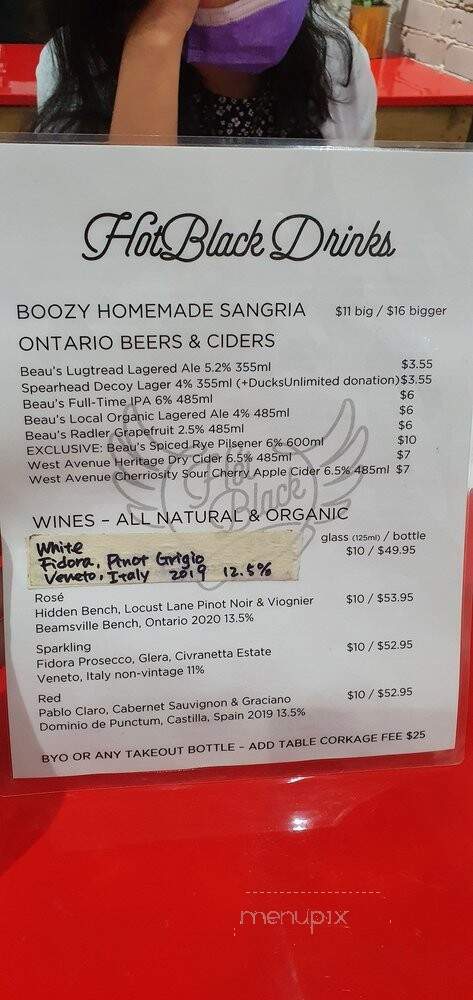 HotBlack Drinks
BOOZY HOMEMADE SANGRIA $11 big / $16 bigger
ONTARIO BEERS & CIDERS
Beau's Lugtread Lagered Ale 5.2% 355ml $3.55
Spearhead Decoy Lager 4% 355ml (+DucksUnlimited donation) $3.55
Beau's Full-Time IPA 6% 485ml $6
Beau's Local Organic Lagered Ale 4% 485ml $6
Beau's Radler Grapefruit 2.5% 485ml $6
EXCLUSIVE: Beau's Spiced Rye Pilsener 6% 600ml $10
West Avenue Heritage Dry Cider 6.5% 485ml $7
West Avenue Cherriosity Sour Cherry Apple Cider 6.5% 485ml $7
Hot
Black
WINES – ALL NATURAL & ORGANIC
glass (125ml) / bottle
White
Fidora, Pinot Grigio $10 / $49.95
Veneto, Italy 2019 12.5%
Rosé
Hidden Bench, Locust Lane Pinot Noir & Viognier $10 / $53.95
Beamsville Bench, Ontario 2020 13.5%
Sparkling
Fidora Prosecco, Glera, Civranetta Estate $10 / $52.95
Veneto, Italy non-vintage 11%
Red
Pablo Claro, Cabernet Sauvignon & Graciano $10 / $52.95
Dominio de Punctum, Castilla, Spain 2019 13.5%
BYO OR ANY TAKEOUT BOTTLE – ADD TABLE CORKAGE FEE $25
menupix